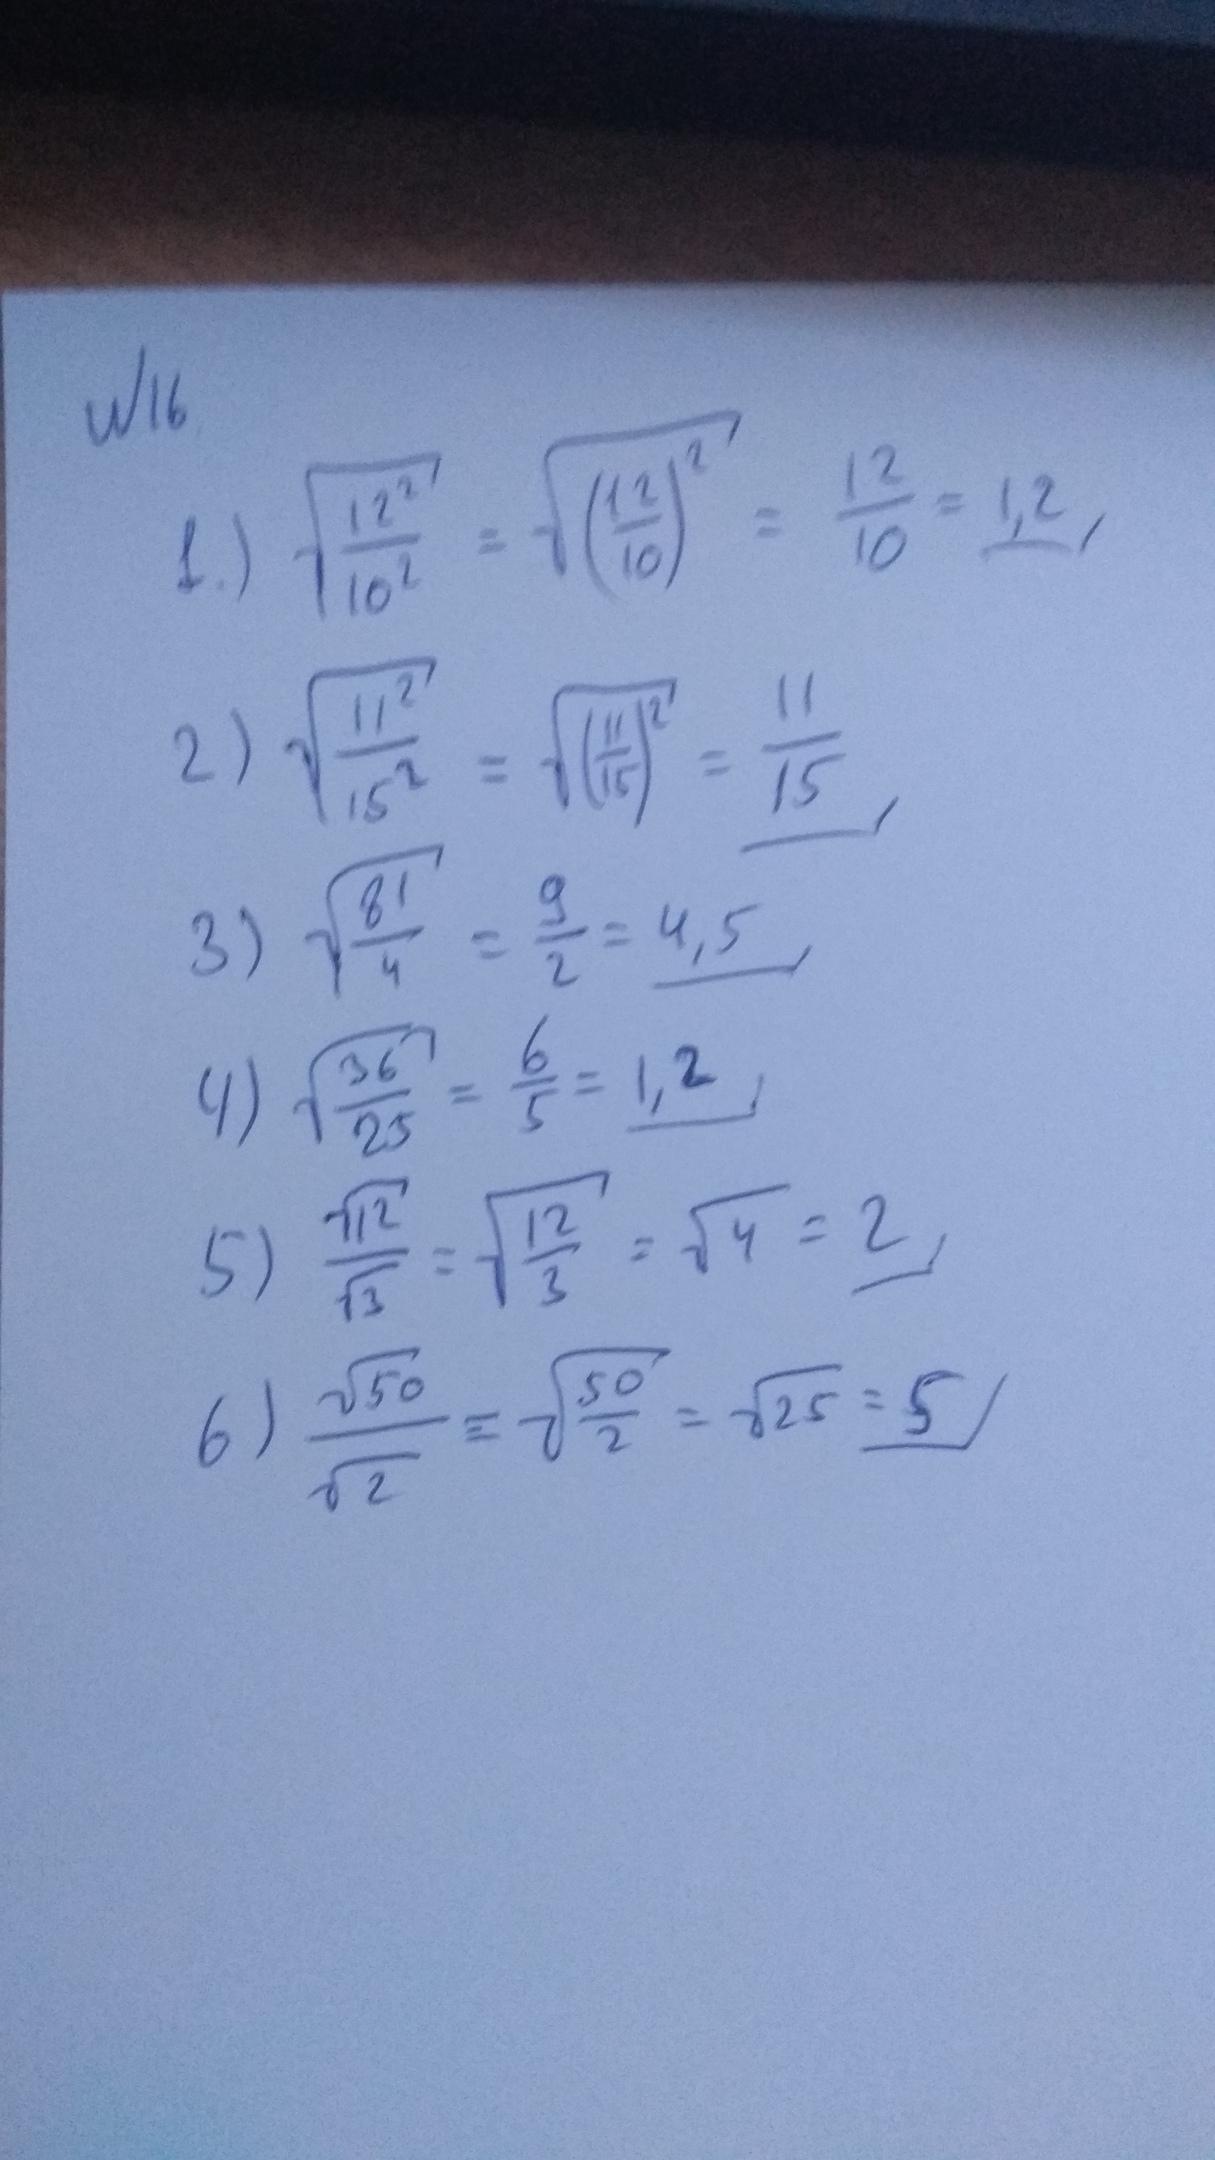 №16
1.) √(12²/10²) = √((12/10)²) = 12/10 = 1,2
2) √(11²/15²) = √((11/15)²) = 11/15
3) √(81/4) = 9/2 = 4,5
4) √(36/25) = 6/5 = 1,2
5) √12/√3 = √(12/3) = √4 = 2
6) √50/√2 = √(50/2) = √25 = 5